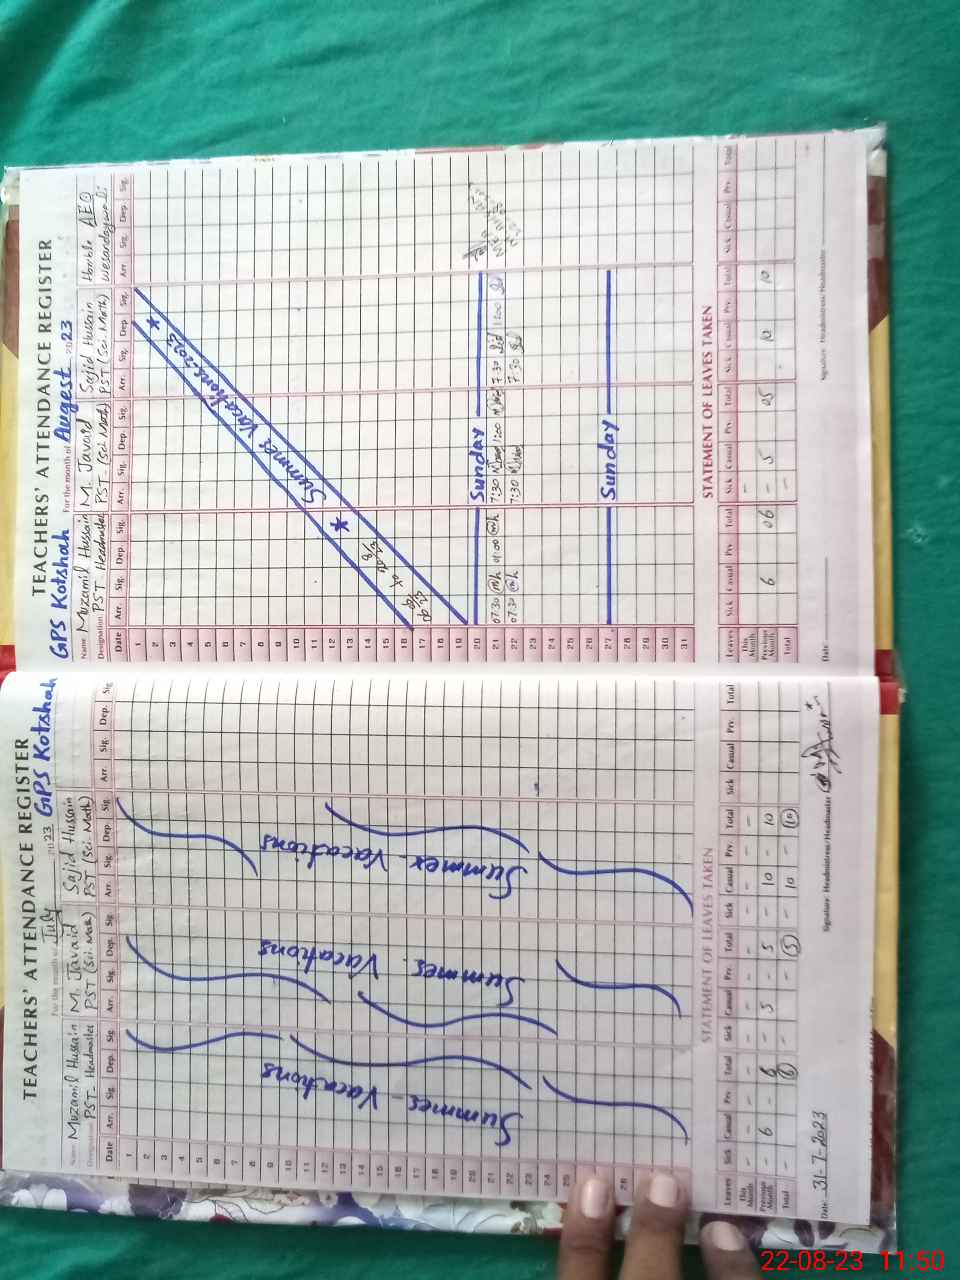 TEACHERS' ATTENDANCE REGISTER
For the month of July 2023 GPS Kotshah
Name Muzamil Hussain M. Javaid Sajid Hussain
Designation PST-Headmaster PST (Sci. Math) PST (Sci. Math)
Date Arr. Sig. Dep. Sig. Arr. Sig. Dep. Sig. Arr. Sig. Dep. Sig. Arr. Sig. Dep. Sig.
1
2
3
4
5
6
7
8
9
10
11
12
13
14
15
16
17
18
19
20
21
22
23
24
25
28
Summer - Vacations
Summer Vacations
Summer - Vacations
STATEMENT OF LEAVES TAKEN
Leaves Sick Casual Prv Total Sick Casual Prv. Total Sick Casual Prv. Total Sick Casual Prv. Total
This Month - - - - - - - - - -
Previous Month - 6 - 6 - 5 - 5 - 10 - 10
Total - 6 - 5 - 10 - 10
Date: 31-7-2023 Signature Headmistress/Headmaster
TEACHERS' ATTENDANCE REGISTER
GPS Kotshah For the month of Augest 2023
Name Muzamil Hussain M. Javaid Sajid Hussain Honble AEO
Designation PST-Headmaster PST-(Sci. Math) PST (Sci. Math)
Date Arr. Sig. Dep. Sig. Arr. Sig. Dep. Sig. Arr. Sig. Dep. Sig. Arr. Sig. Dep. Sig.
1
2
3
4
5
6
7
8
9
10
11
12
13
14
15
16
17
18
19
Summer Vacations-2023
20 Sunday
21 07:30 01:00 7:30 1:00 7:30 1:00
22 07:30 7:30 7:30
23
24
25
26
27 Sunday
28
29
30
31
STATEMENT OF LEAVES TAKEN
Leaves Sick Casual Prv Total Sick Casual Prv. Total Sick Casual Prv. Total Sick Casual Prv. Total
This Month -
Previous Month 6 06 - 5 05 10 10
Total -
Date: Signature Headmistress/Headmaster
22-08-23 11:50